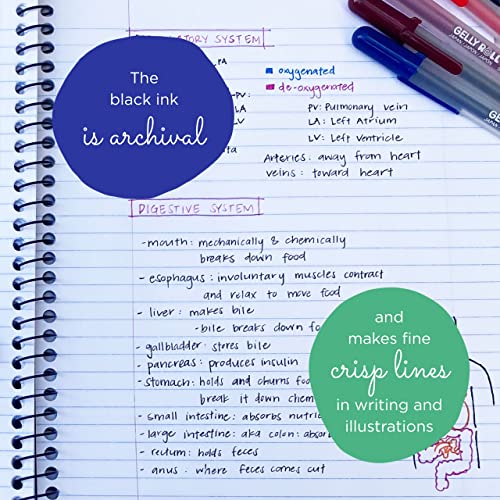 SYSTEM
The
black ink
is archival
oxygenated
de-oxygenated
PV: Pulmonary vein
LA
LA: Left Atrium
LV: Left Ventricle
Arteries: away from heart
veins: toward heart
GELLY ROLL
JAPAN
GELLY
DIGESTIVE SYSTEM
-mouth: mechanically & chemically
breaks down food
- esophagus: involuntary muscles contract
and relax to move food
- liver: makes bile
-bile breaks down
- gallbladder: stores bile
- pancreas: produces insulin
-stomach: holds and churns
break it down
- small intestine: absorbs
- large intestine: aka colon:
- rectum: holds feces
- anus: where feces comes out
and
makes fine
crisp lines
in writing and
illustrations